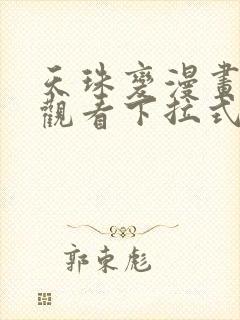 天珠變漫畫
觀看下拉式
郭東彪